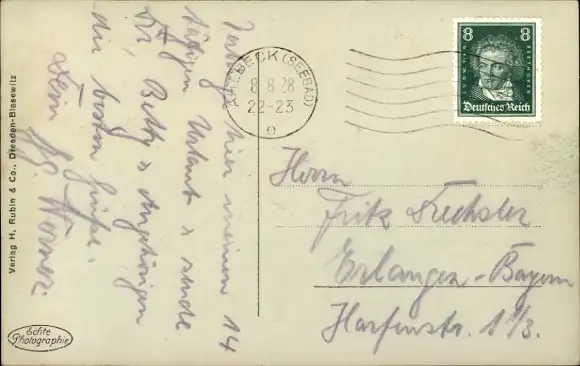 Verbringe hier meinen 14
tägigen Urlaub & sende
Dir, Betty & Angehörigen
die besten Grüße.
Dein Gg. Werner.
Verlag H. Rubin & Co., Dresden-Blasewitz
Echte
Photographie
AHLBECK (SEEBAD)
8 8.28
22-23
e
8 8
LUDW. VAN BEETHOVEN
Deutsches Reich
Herrn
Fritz Drechsler
Erlangen-Bayern
Harfenstr. 1 1/3.